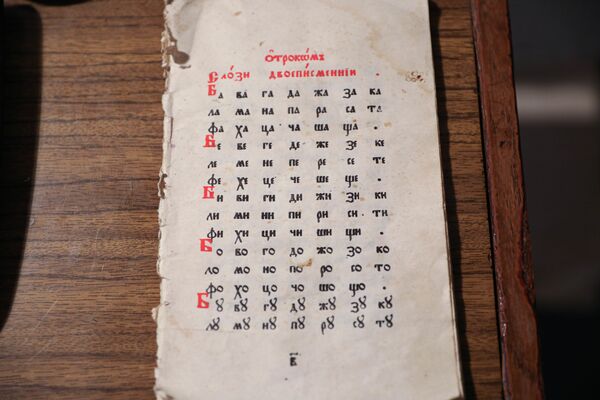 Ѻтрокѡмъ
Сло́зи двоеписменнїи .
Ба ва га да жа за ка
ла ма на па ра са та
фа ха ца ча ша ща .
Бе ве ге де же зе ке
ле ме не пе ре се те
фе хе це че ше ще .
Би ви ги ди жи зи ки
ли ми ни пи ри си ти
фи хи ци чи ши щи .
Бо во го до жо зо ко
ло мо но по ро со то
фо хо цо чо шо що .
Бꙋ вꙋ гꙋ дꙋ жꙋ зꙋ кꙋ
лꙋ мꙋ нꙋ пꙋ рꙋ сꙋ тꙋ
в҃